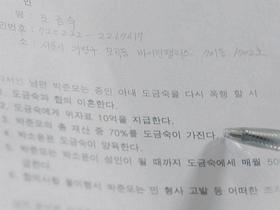 인
명 : 도금숙
민번호 : 720222 - 2267617
소 : 서울시
남편 박준모는 증인 아내 도금숙을 다시 폭행 할 시
도금숙과 협의 이혼한다.
2. 도금숙에게 위자료 10억을 지급한다.
3. 박준모의 총 재산 중 70%를 도금숙이 가진다.
4. 박소윤은 도금숙이 양육한다.
5. 박준모는 박소윤이 성인이 될 때까지 도금숙에게 매월 50
급한다.
6. 합의사항 불이행시 박준모는 민 형사 고발 등 어떠한 조